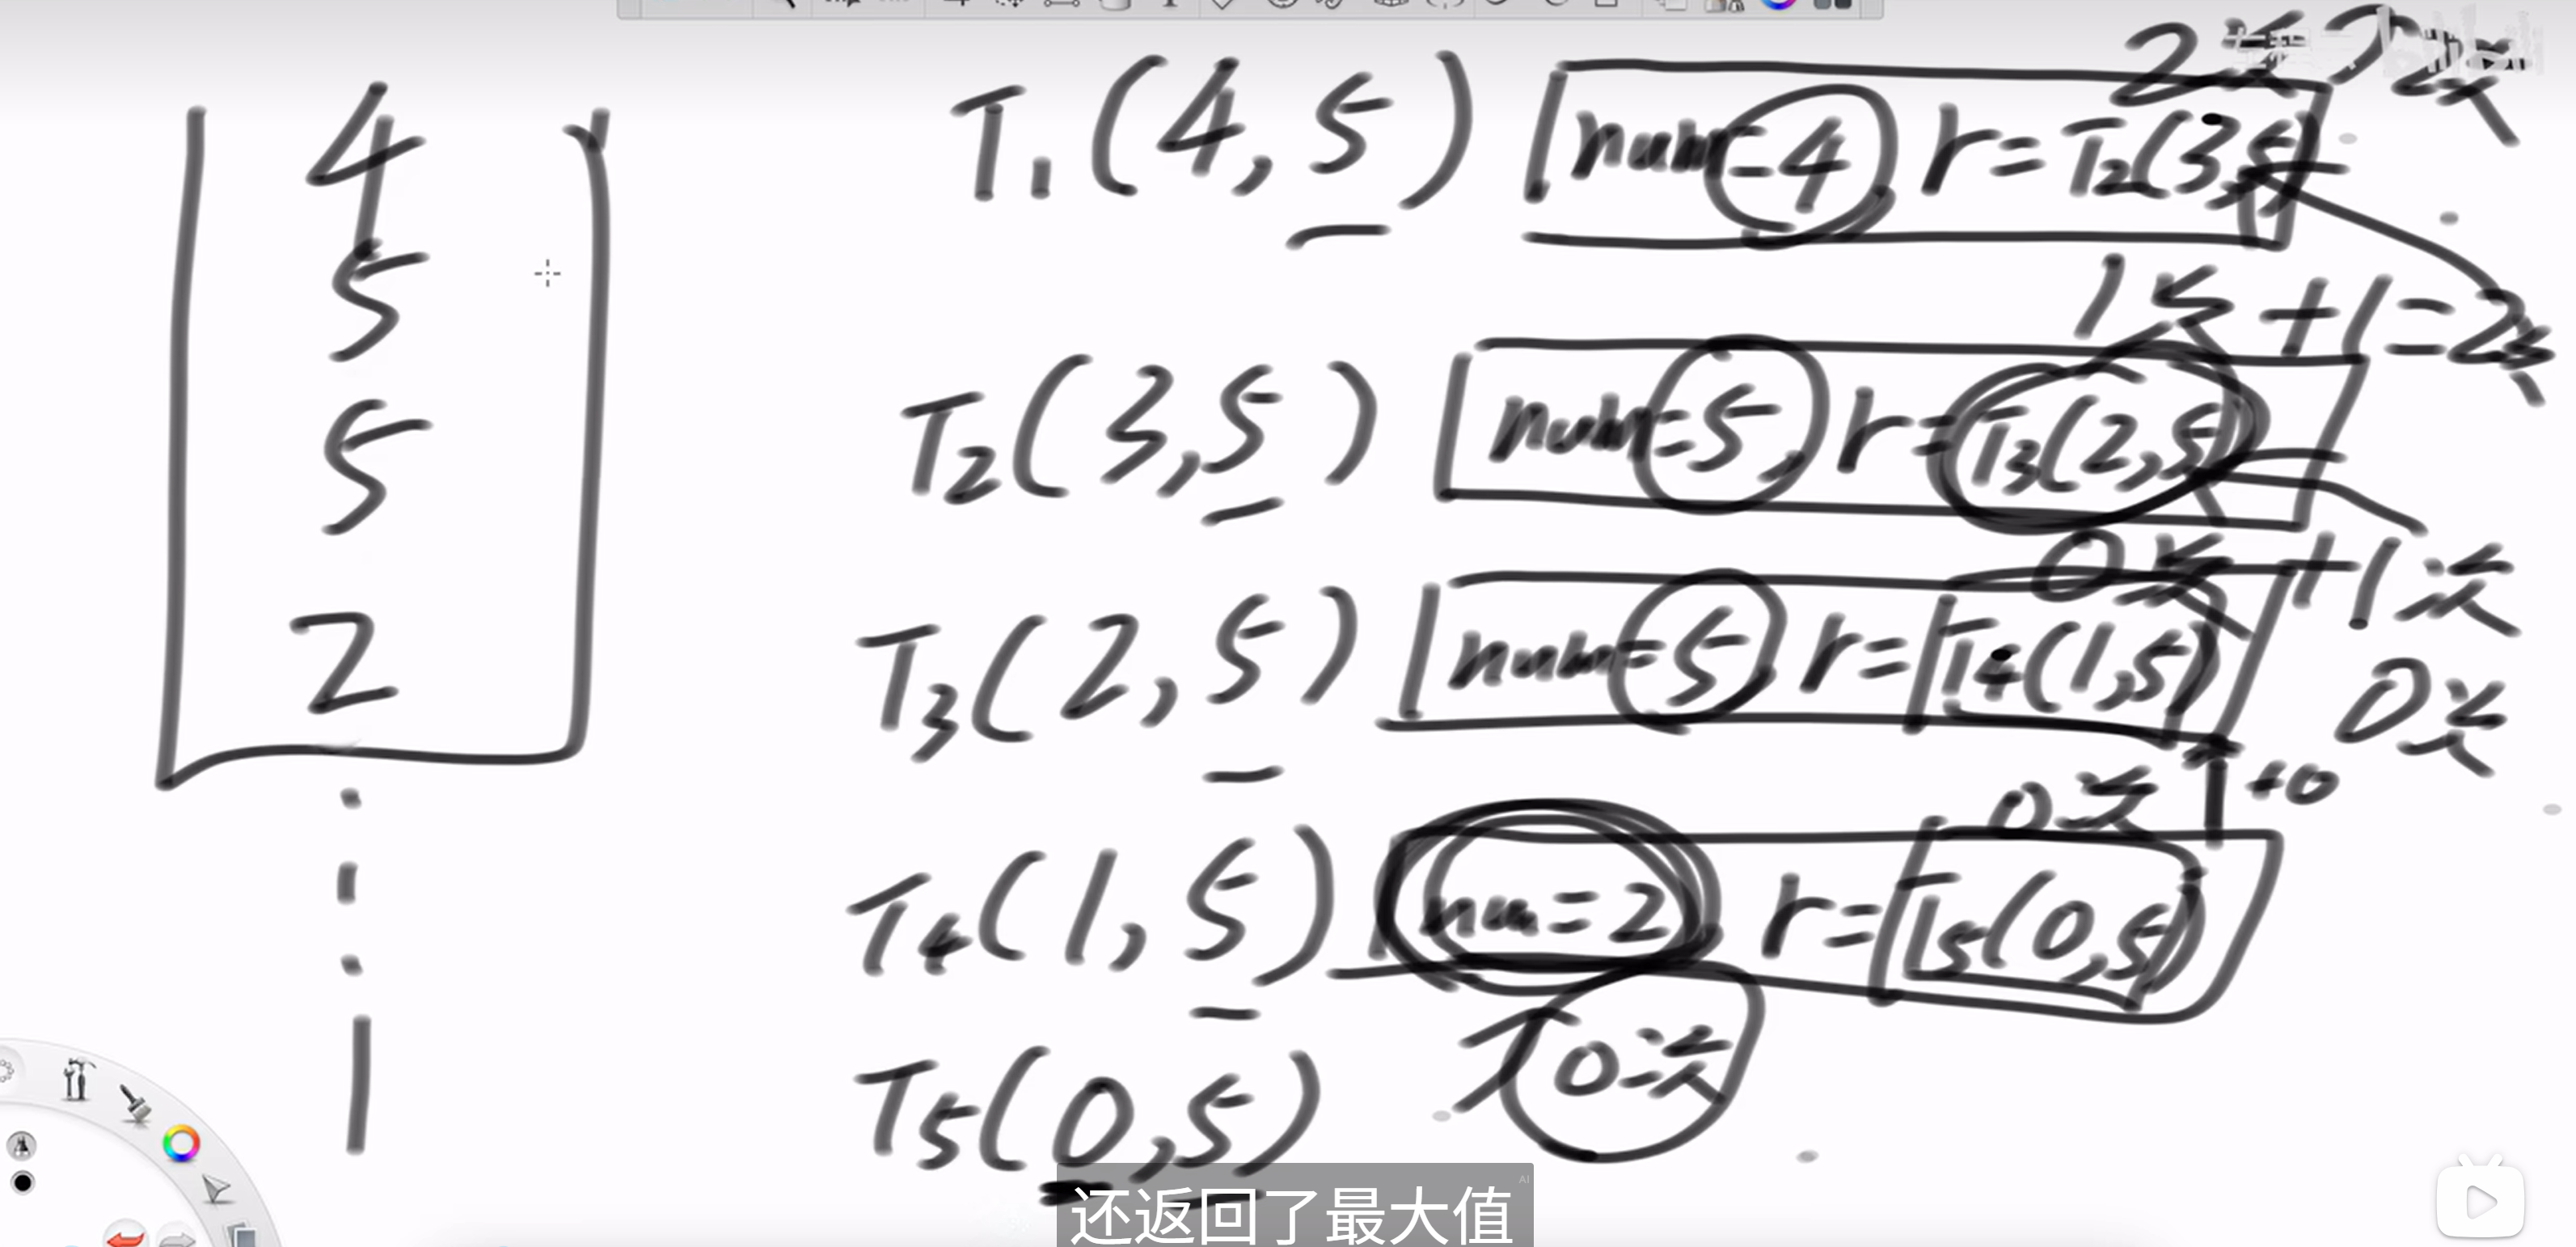 4
5
5
2
1
2次 2次
T1(4,5) num=4 r=T2(3,5)
1次+1=2次
T2(3,5) num=5, r=T3(2,5)
0次+1次
T3(2,5) num=5 r=T4(1,5) 0次
0次 +0
T4(1,5) num=2 r=T5(0,5)
T5(0,5) 0次
还返回了最大值
AI